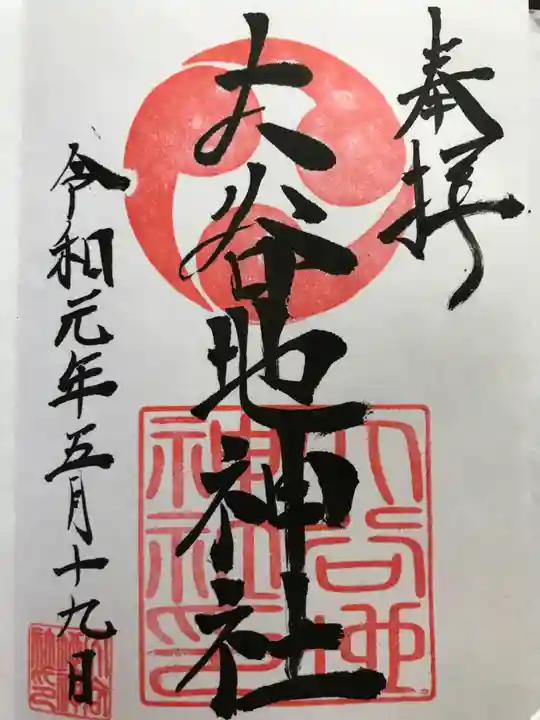 奉拝
大谷地神社
令和元年五月十九日
大谷地
神社印